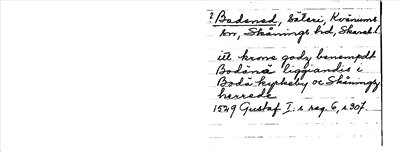 ? Badened, säteri, Kvänums
sn, Skånings hd, Skarab. l.
itt krone godz benempdt
Bodänä liggiandis i
Bodä kyrkeby oc Skånings
herrede
1549 Gustaf I:s reg. 6, s. 307.